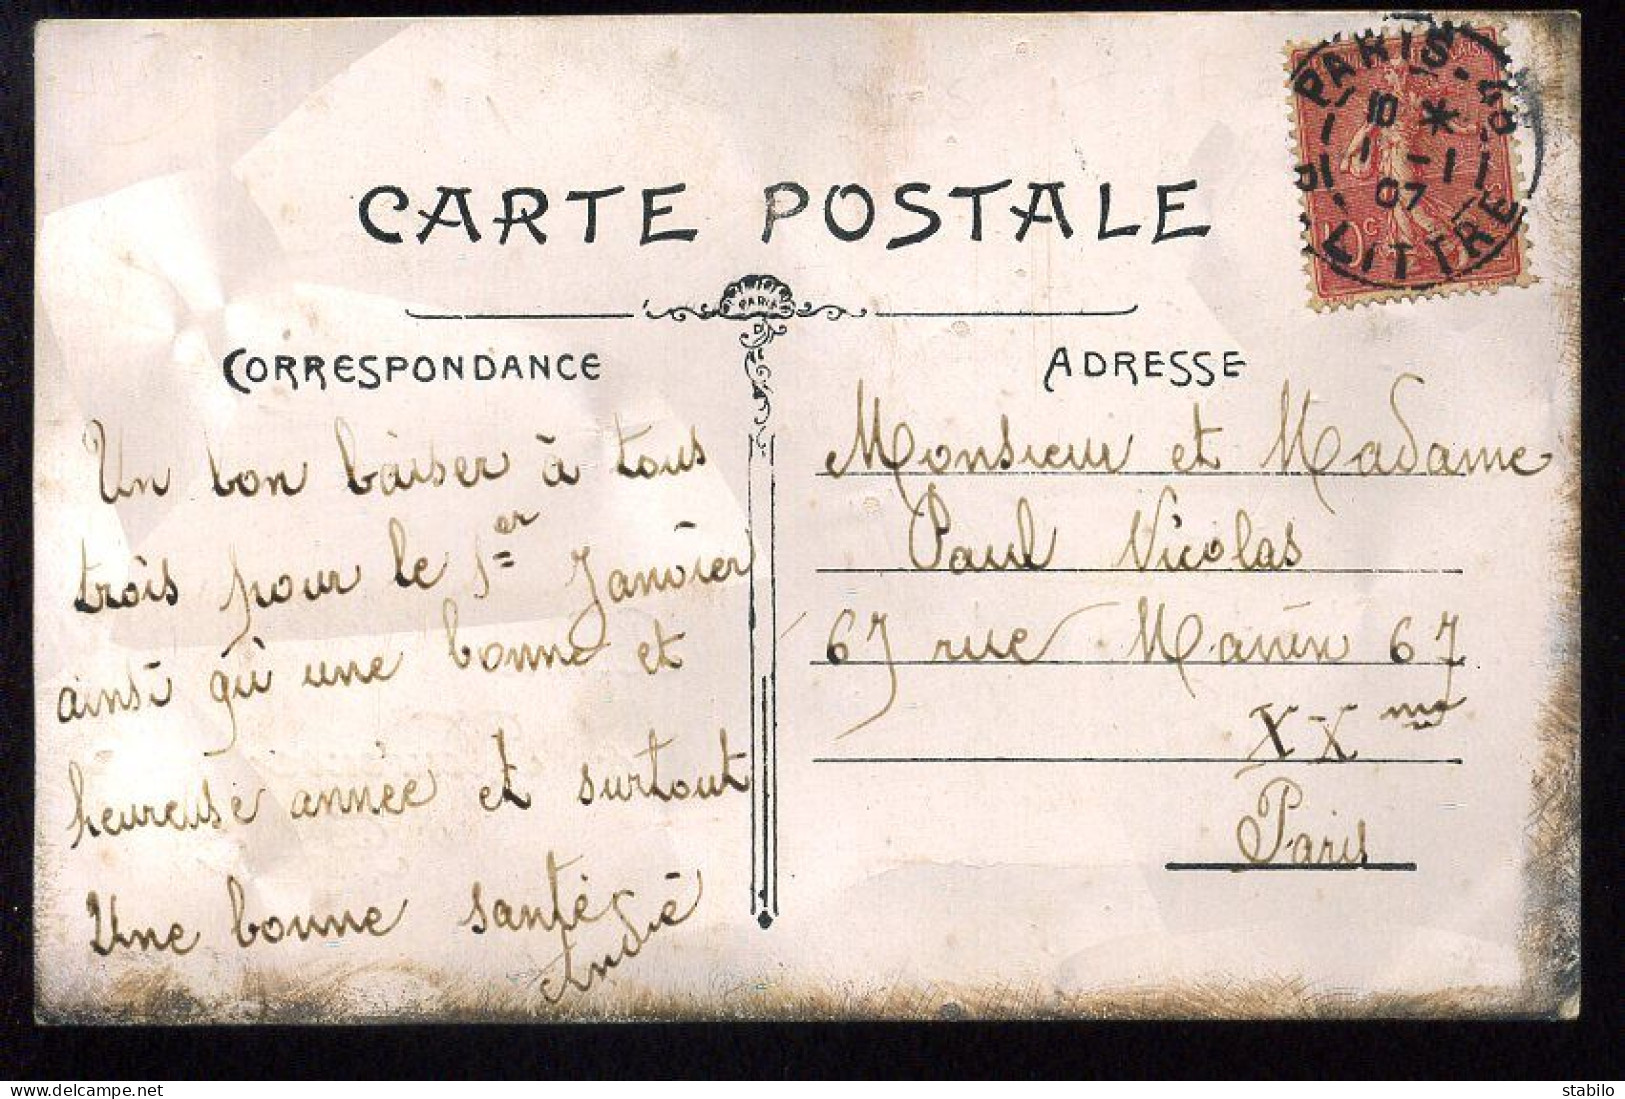 CARTE POSTALE
PARIS
CORRESPONDANCE
ADRESSE
PARIS
10 *
1 - 1
07
LITTRE
10c
Un bon baiser à tous
trois pour le 1er Janvier
ainsi qu'une bonne et
heureuse année et surtout
Une bonne santé
André
Monsieur et Madame
Paul Nicolas
67 rue 67
XXme
Paris
stabilo